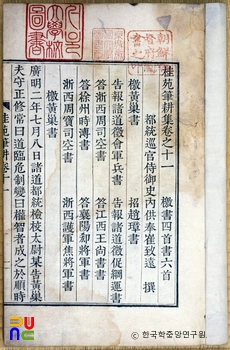 桂苑筆耕集卷之十一
都統巡官侍御史內供奉崔致遠 撰
檄書四首書六首
檄黃巢書
招趙璋書
告報諸道徵會軍兵書
告報諸道徵促綱運書
答浙西周司空書
答江西王尙書書
答徐州時溥書
答襄陽郄將軍書
浙西周寶司空書
浙西護軍焦將軍書
檄黃巢書
廣明二年七月八日諸道都統檢校太尉某告黃巢
夫守正修常曰道臨危制變曰權智者成之於順時
桂苑筆耕 卷十一
한국학중앙연구원